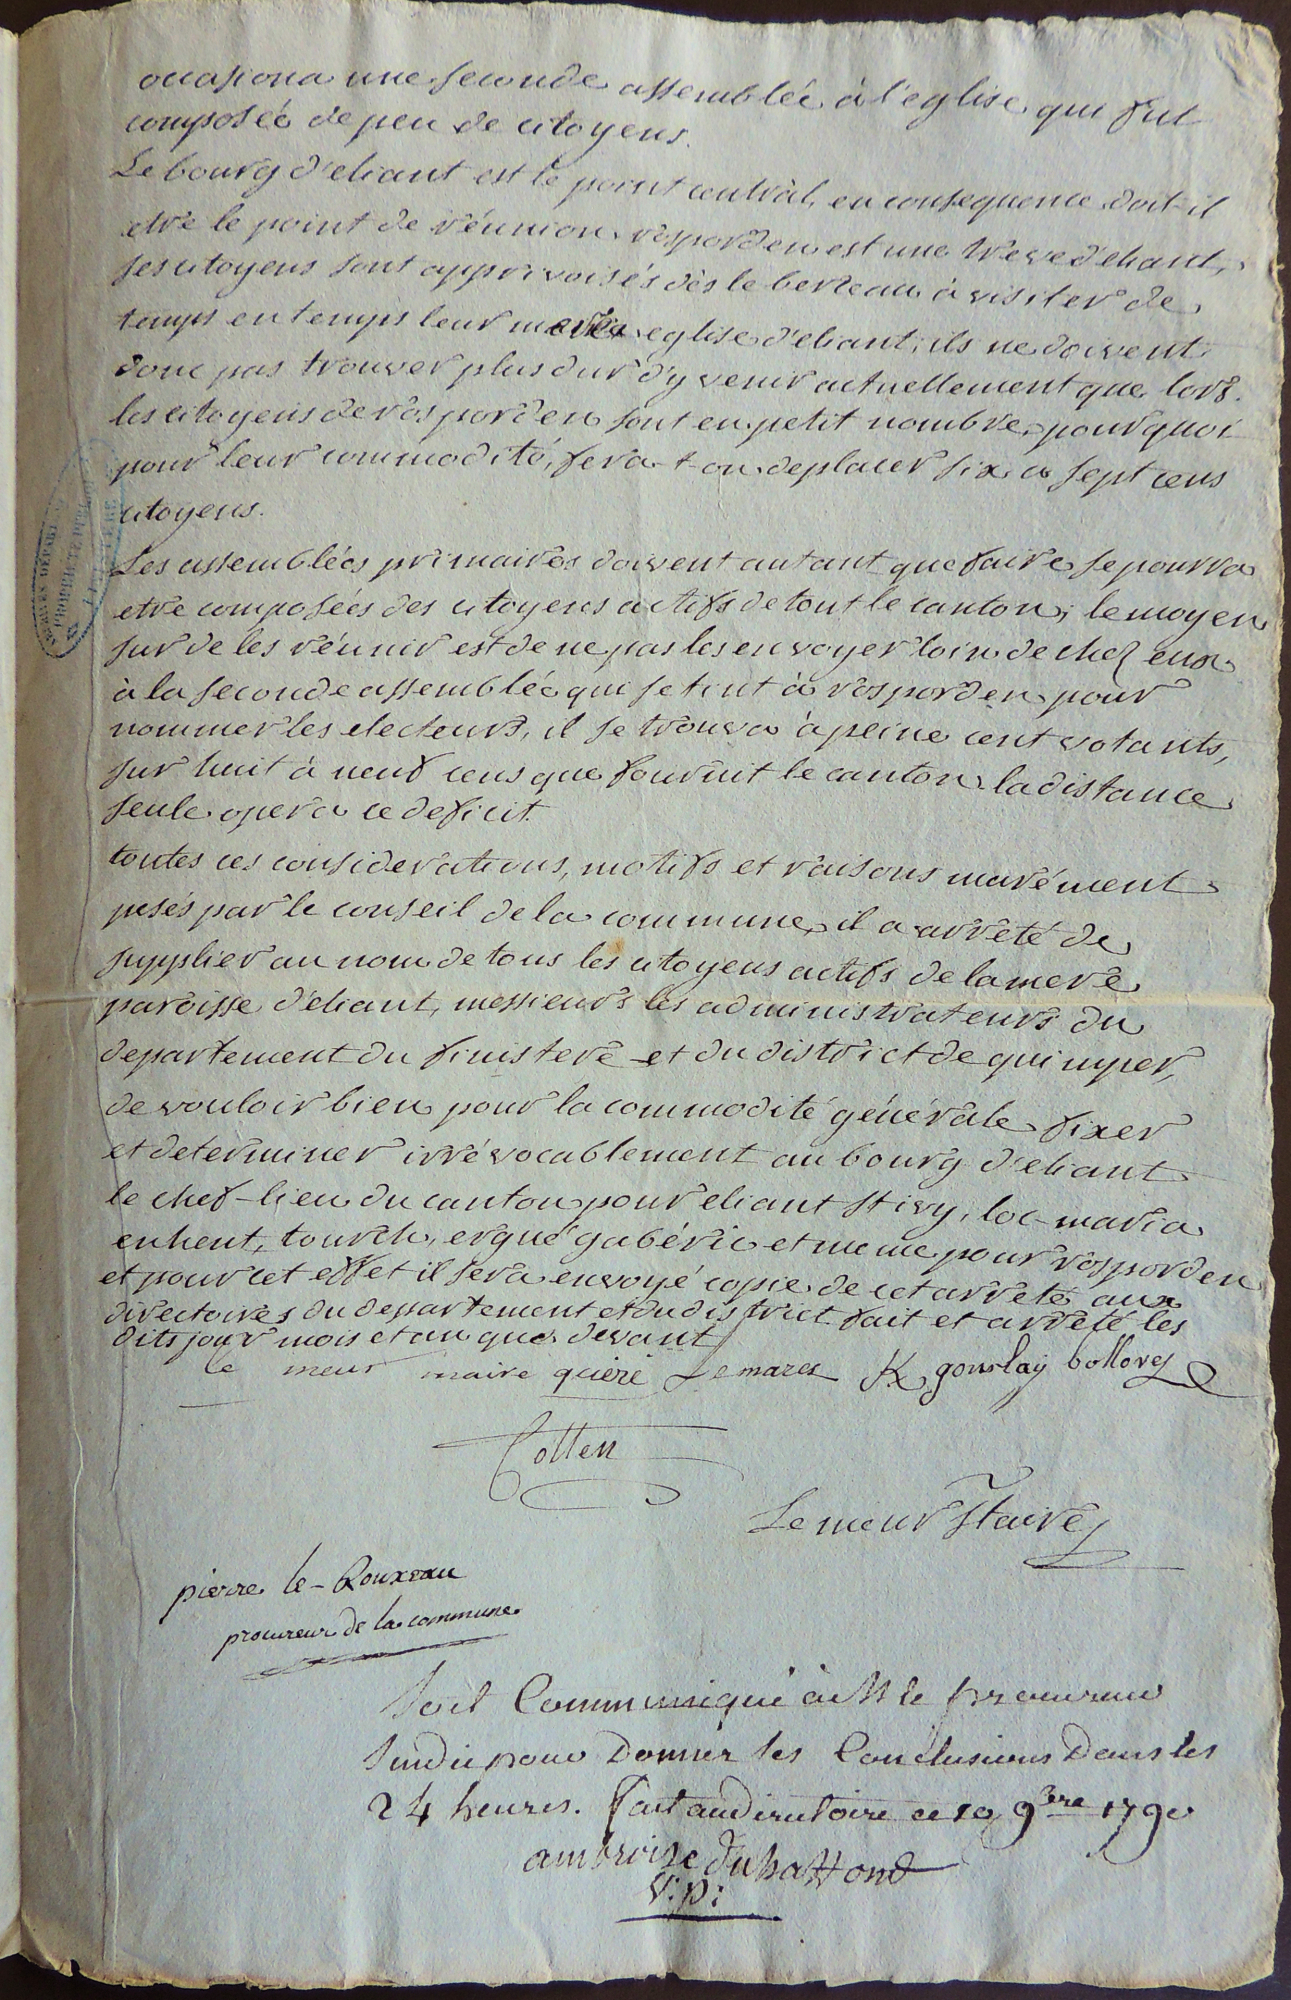 occasiona une seconde assemblée à l'eglise qui fut
composée de peu de citoyens.
Le bourg d'eliant est le point centràl, en consequence doit-il
etre le point de réunion. rosporden est une treve d'eliant,
ses citoyens sont apprivoisés dès le berceau à visiter de
temps en temps leur mere eglise d'eliant; ils ne doivent
donc pas trouver plus dur d'y venir actuellement que lors.
les citoyens de rosporden sont en petit nombre, pourquoi
pour leur commodité, fera-t-on deplacer six a sept cens
citoyens.
Les assemblées primaires doivent autant que faire se pourra
etre composées des citoyens actifs de tout le canton; le moyen
sur de les réunir est de ne pas les envoyer loin de chez eux
à la seconde assemblée qui se tint à rosporden pour
nommer les electeurs, il se trouva à peine cent votants,
sur huit à neuf cens que fournit le canton. la distance
seule opera ce deficit.
toutes ces considerations, motifs et raisons murément
pesés par le conseil de la commune, il a arrêté de
supplier au nom de tous les citoyens actifs de la mere
paroisse d'eliant, messieurs les administrateurs du
departement du finistere et du district de quimper,
de vouloir bien pour la commodité générale fixer
et determiner irrévocablement au bourg d'eliant
le chef-lieu du canton pour eliant St ivy, loc-maria
enhent, tourch, ergué gabéric et meme pour rosporden
et pour cet effet il sera envoyé copie de cet arreté aux
directoires du departement et du district fait et arrêté les
dits jour mois et an que devant
le meur maire quéré Lemarec K gourlay bollorey
Cotten
Lemeur
pierre le-Rouxeau
procureur de la commune
Soit Communiqué à M le procureur
Sindic pour Donner ses Conclusions Dans les
24 heures. fait au directoire ce 10 9bre 1790
ambroise Duhaffond
v: p: